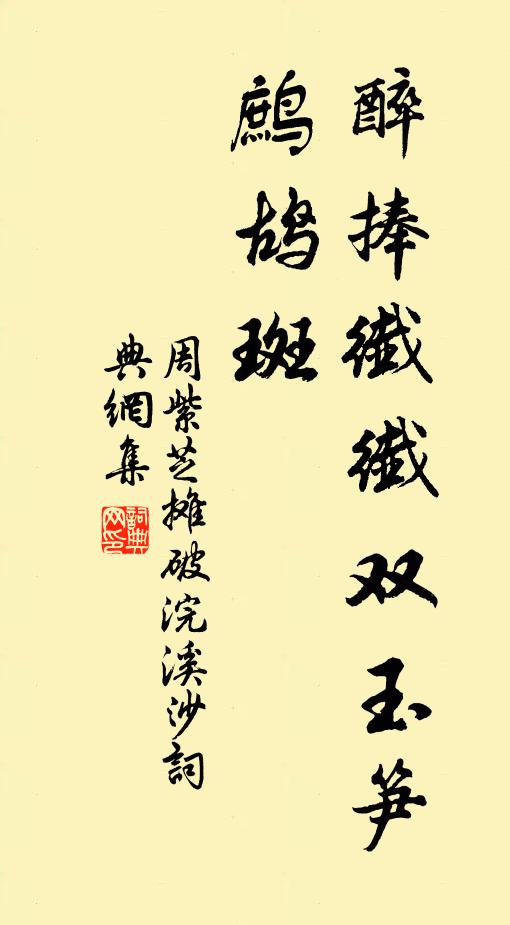 醉捧纖纖双玉笋
鷓鴣斑
周紫芝摊破浣溪沙詞
典網集
詞典網印